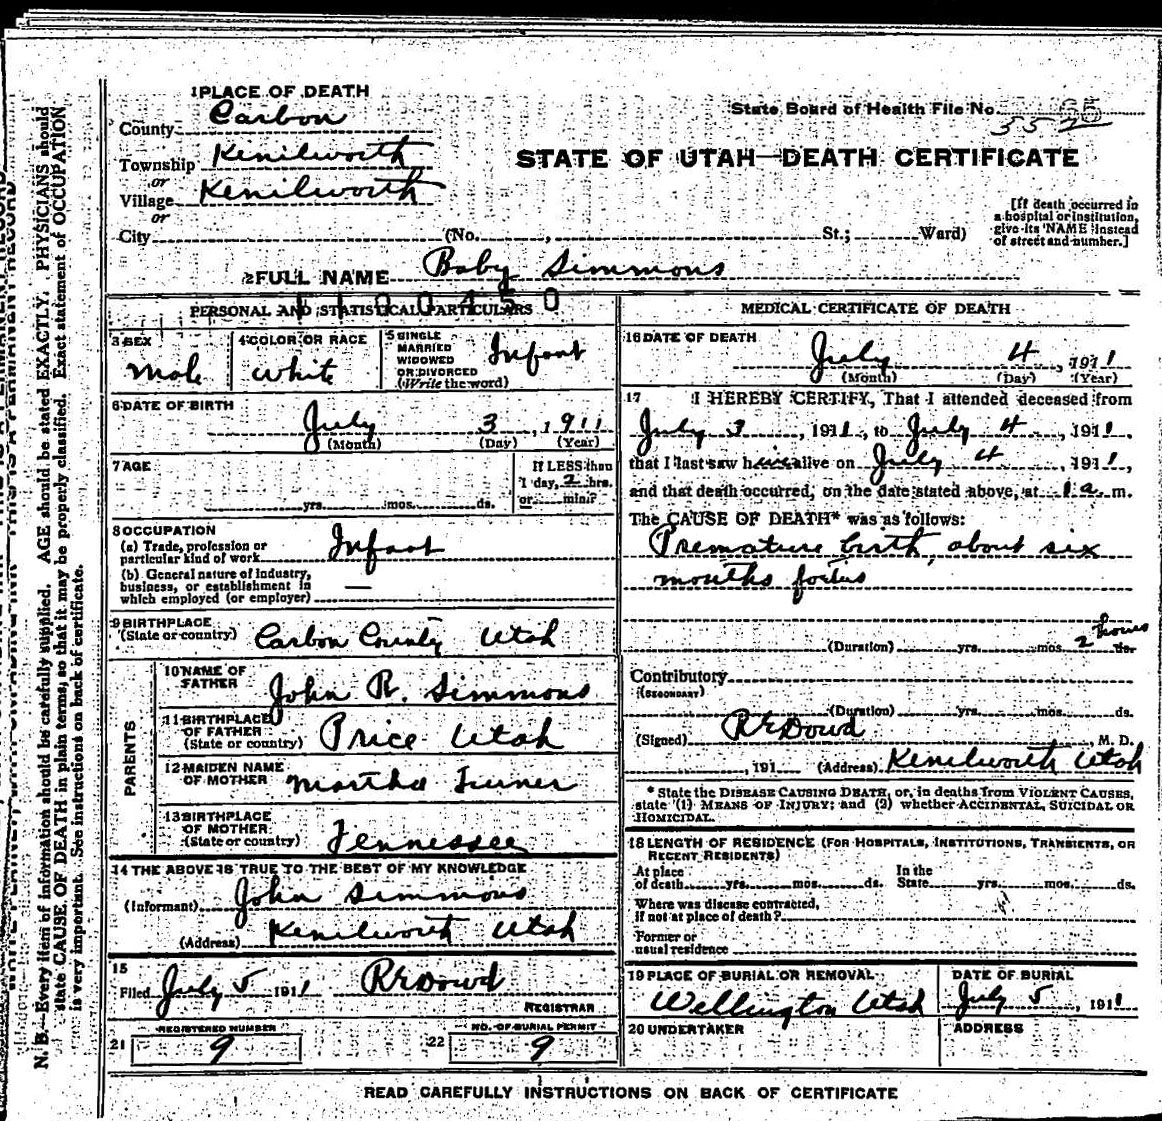 1 PLACE OF DEATH
County Carbon
State Board of Health File No. 65
552
Township Kenilworth
or
STATE OF UTAH—DEATH CERTIFICATE
Village Kenilworth
or
City (No. , St.; Ward)
[If death occurred in
a hospital or institution,
give its NAME instead
of street and number.]
2 FULL NAME Baby Simmons
1100450
PERSONAL AND STATISTICAL PARTICULARS
3 SEX
Male
4 COLOR OR RACE
White
5 SINGLE
MARRIED
WIDOWED
OR DIVORCED
(Write the word)
Infant
6 DATE OF BIRTH
July 3, 1911
(Month) (Day) (Year)
7 AGE
yrs. mos. ds.
If LESS than
1 day, 2 hrs.
or min.?
8 OCCUPATION
(a) Trade, profession or
particular kind of work Infant
(b) General nature of industry,
business, or establishment in
which employed (or employer) —
9 BIRTHPLACE
(State or country) Carbon County Utah
PARENTS
10 NAME OF
FATHER John R. Simmons
11 BIRTHPLACE
OF FATHER
(State or country) Price Utah
12 MAIDEN NAME
OF MOTHER Martha Turner
13 BIRTHPLACE
OF MOTHER
(State or country) Tennessee
14 THE ABOVE IS TRUE TO THE BEST OF MY KNOWLEDGE
(Informant) John Simmons
(Address) Kenilworth Utah
15
Filed July 5 1911 REDowd
REGISTRAR
REGISTERED NUMBER
21 9
NO. OF BURIAL PERMIT
22 9
MEDICAL CERTIFICATE OF DEATH
16 DATE OF DEATH
July 4, 1911
(Month) (Day) (Year)
17 I HEREBY CERTIFY, That I attended deceased from
July 3, 1911, to July 4, 1911,
that I last saw him alive on July 4, 1911,
and that death occurred, on the date stated above, at 1 a. m.
The CAUSE OF DEATH* was as follows:
Premature birth, about six
months foetus
(Duration) yrs. mos. 2 hours ds.
Contributory
(SECONDARY)
(Duration) yrs. mos. ds.
(Signed) REDowd, M. D.
, 191 (Address) Kenilworth Utah
* State the DISEASE CAUSING DEATH, or, in deaths from VIOLENT CAUSES,
state (1) MEANS OF INJURY; and (2) whether ACCIDENTAL, SUICIDAL OR
HOMICIDAL.
18 LENGTH OF RESIDENCE (FOR HOSPITALS, INSTITUTIONS, TRANSIENTS, OR
RECENT RESIDENTS)
At place
of death yrs. mos. ds.
In the
State yrs. mos. ds.
Where was disease contracted,
if not at place of death?
Former or
usual residence
19 PLACE OF BURIAL OR REMOVAL
Wellington Utah
DATE OF BURIAL
July 5, 1911
20 UNDERTAKER
ADDRESS
READ CAREFULLY INSTRUCTIONS ON BACK OF CERTIFICATE
N. B.—Every item of information should be carefully supplied. AGE should be stated EXACTLY. PHYSICIANS should
state CAUSE OF DEATH in plain terms, so that it may be properly classified. Exact statement of OCCUPATION
is very important. See instructions on back of certificate.